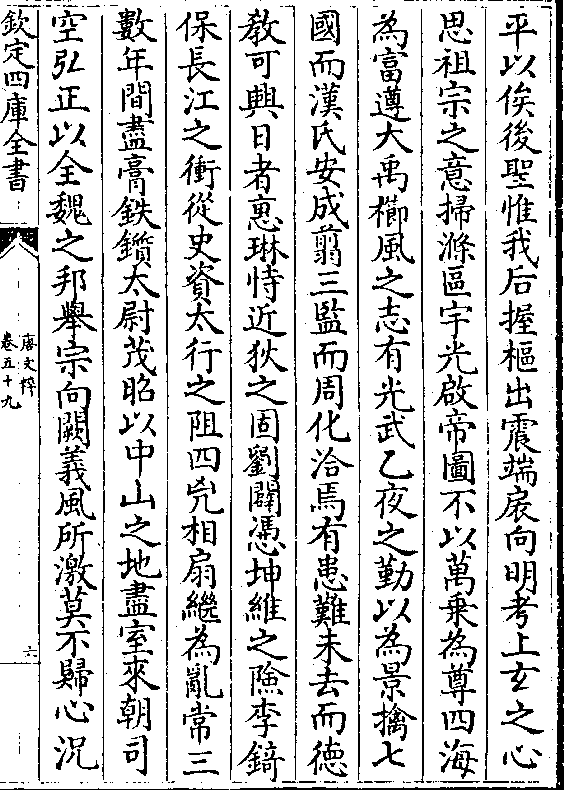 平以俟後聖惟我后握樞出震端扆向明考上𤣥之心
思祖宗之意掃滌區宇光啟帝圖不以萬乗為尊四海
為富遵大禹櫛風之志有光武乙夜之勤以為景擒七
國而漢氏安成翦三監而周化洽焉有患難未去而徳
教可興日者惠琳恃近狄之固劉闢憑坤維之險李錡
保長江之衝從史資太行之阻四兇相扇繼為亂常三
數年間盡膏鈇鑕太尉茂昭以中山之地盡室來朝司
空弘正以全魏之邦舉宗向闕義風所激莫不歸心況
欽定四庫全書
唐文粹
卷五十九
六